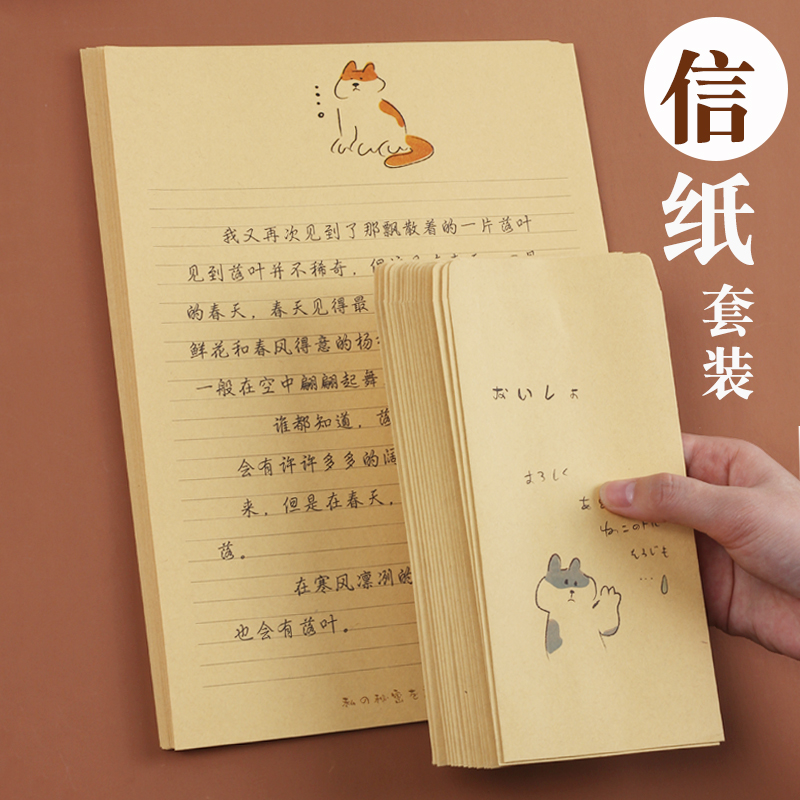 信
纸
套装
我又再次见到了那飘散着的一片落叶
见到落叶并不稀奇，但
的春天，春天见得最
鲜花和春风得意的杨
一般在空中翩翩起舞
谁都知道，落
会有许许多多的
来，但是在春天，
落。
在寒风凛冽的
也会有落叶。
私の秘密を
ないしょ
よろしく
ねこの